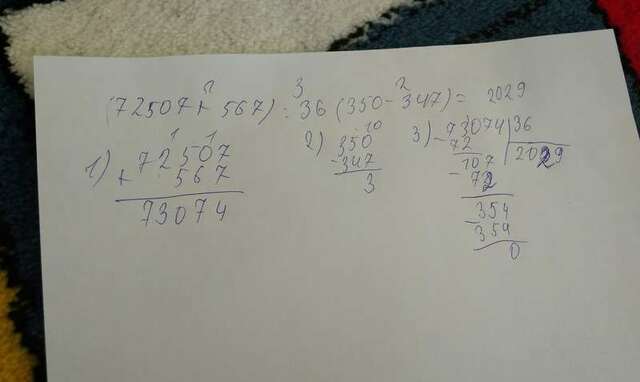 (72507+567):36(350-347)=2029
1) 72507
+ 567
73074
2) 350
-347
3
3) 73074 36
-72 2029
107
-72
354
-354
0